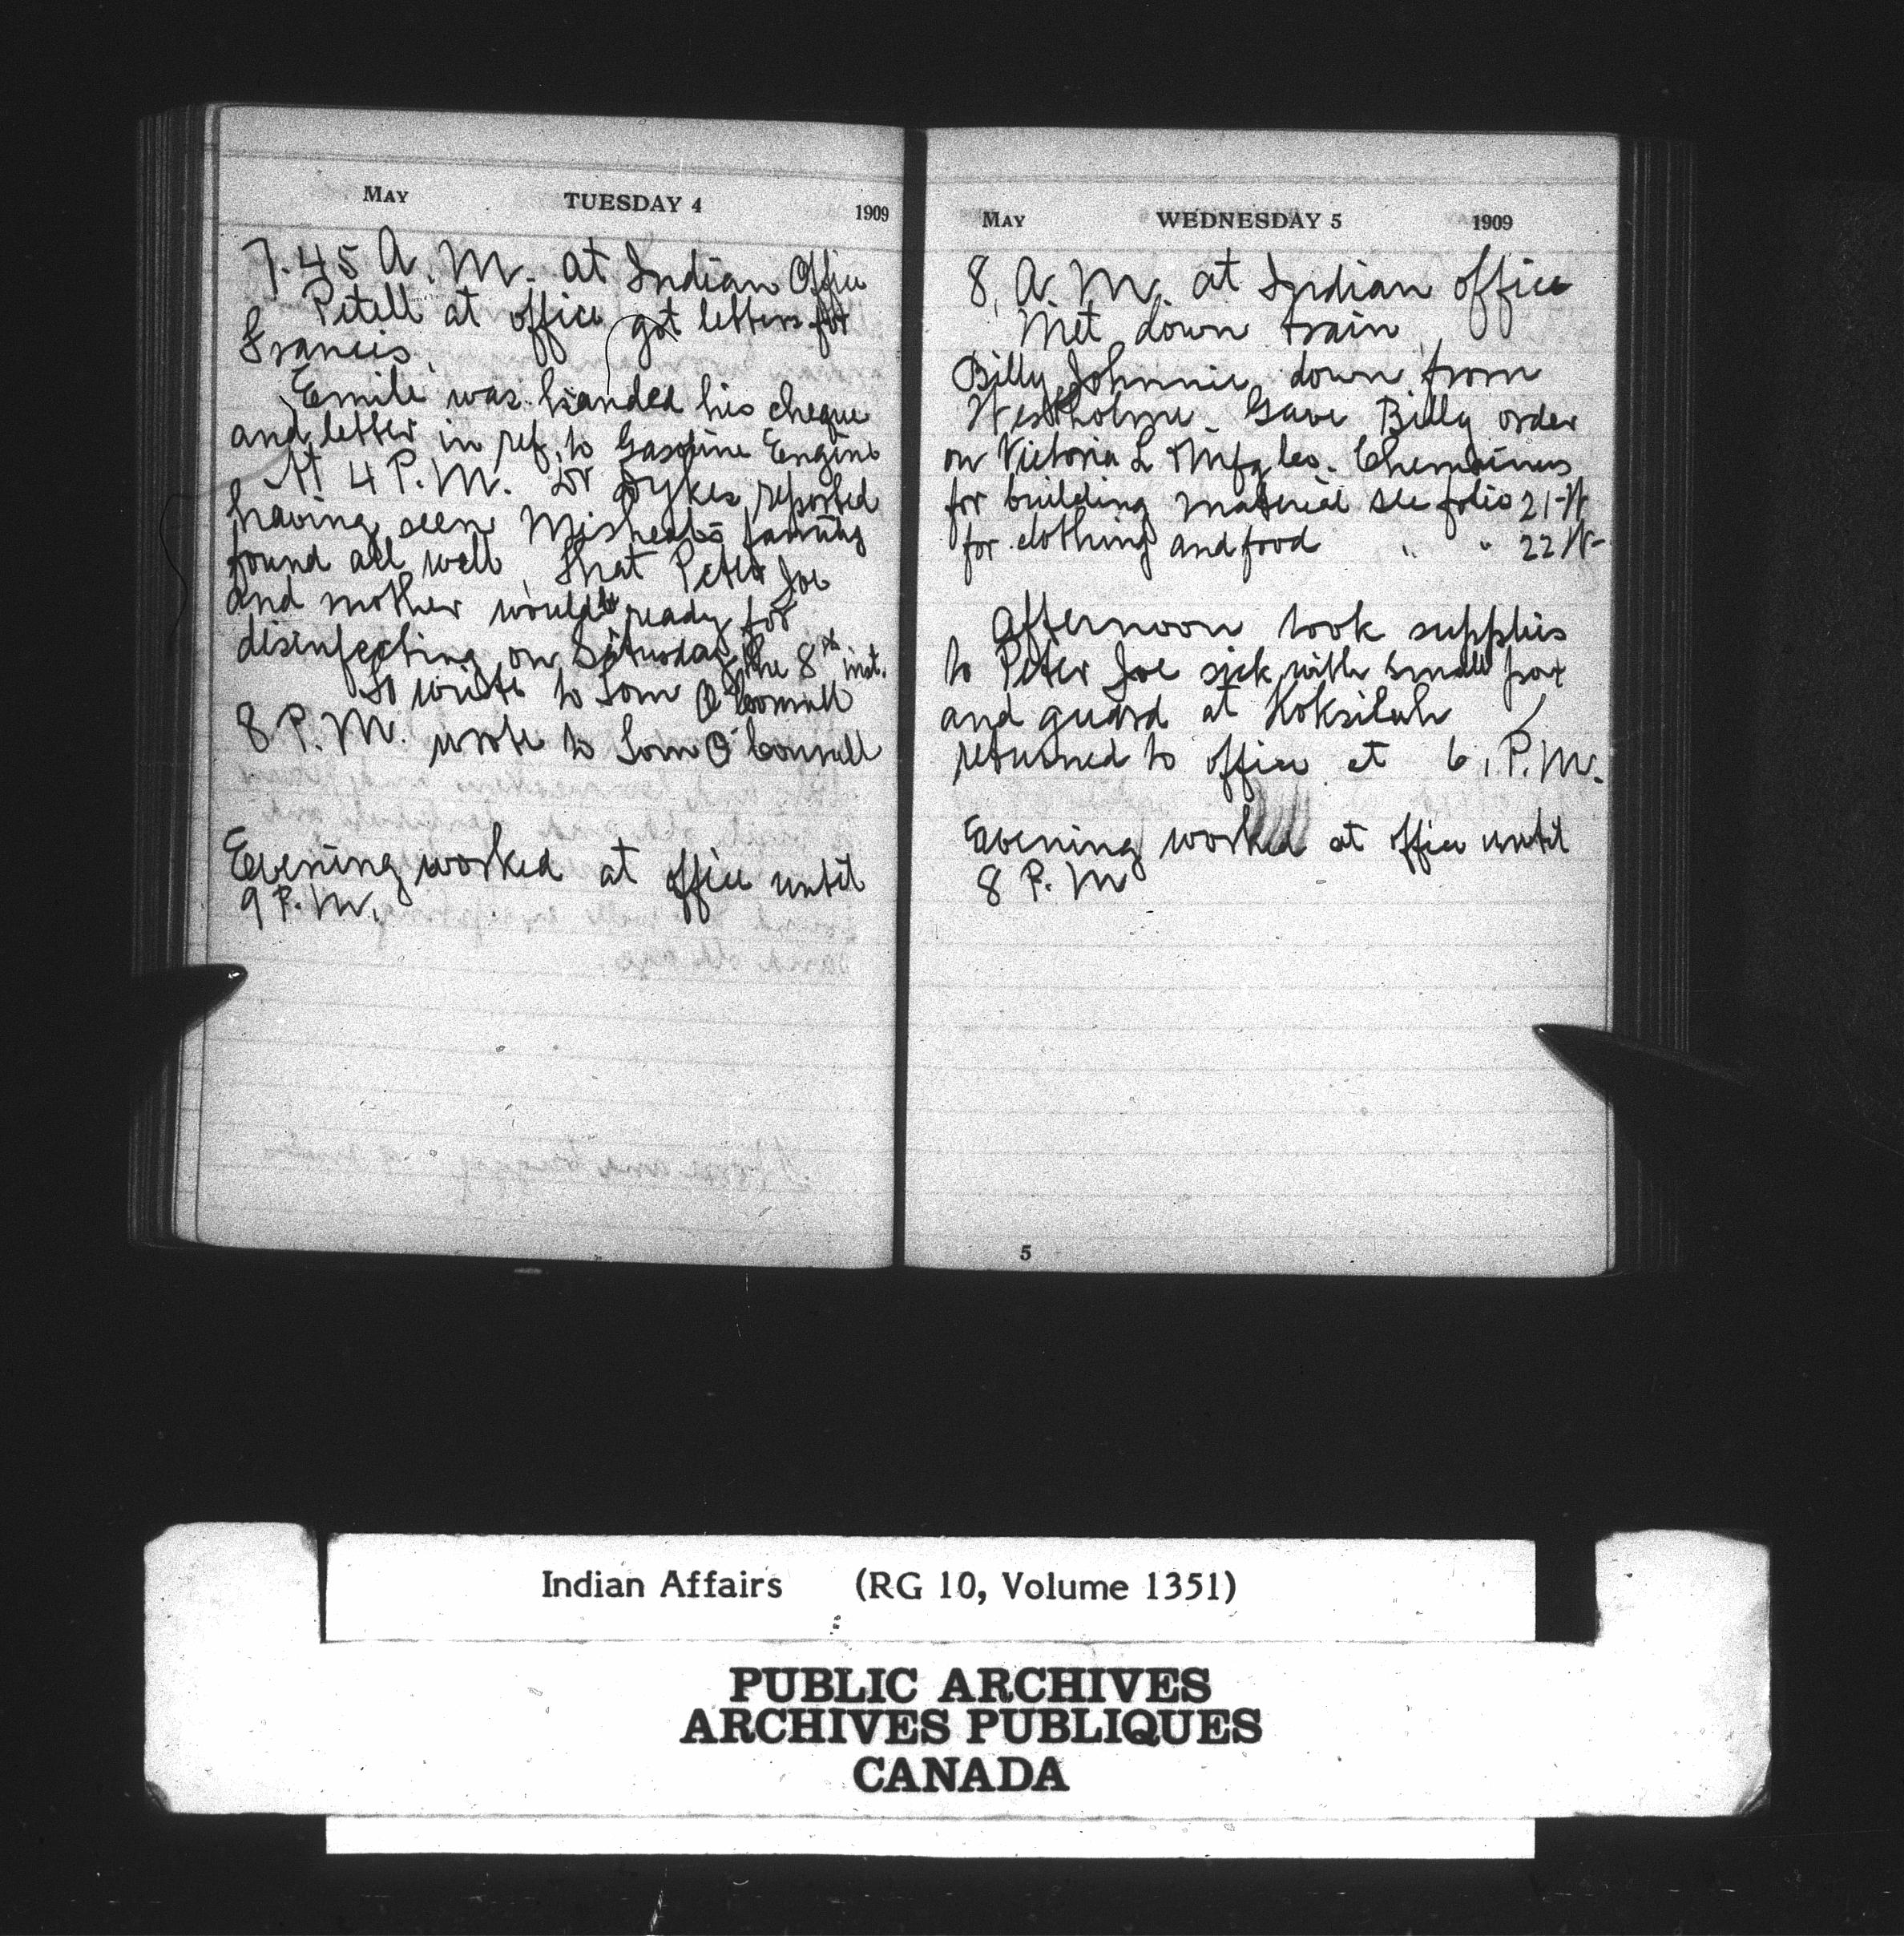 MAY TUESDAY 4 1909
7.45 A.M. at Indian Office
Petell at office got letters for
Francis.
Emile was handed his cheque
and letter in ref. to Gasoline Engine
At 4 P.M. Dr Dykes reported
having seen family
found all well, that Peter Joe
and mother would be ready for
disinfecting on Saturday, the 8th inst.
to wrote to Tom O'Connell
8 P.M. wrote to Tom O'Connell
Evening worked at office until
9 P.M.
MAY WEDNESDAY 5 1909
8, A.M. at Indian office
Met down train
Billy Johnnie down from
Westholme. Gave Billy order
on Victoria L & Mfg Co. Chemainus
for building material see folio 21-W
for clothing and food " " 22 W-
Afternoon took supplies
to Peter Joe sick with small pox
and guard at Koksilah
returned to office at 6, P.M.
Evening worked at office until
8 P.M
5
Indian Affairs (RG 10, Volume 1351)
PUBLIC ARCHIVES
ARCHIVES PUBLIQUES
CANADA